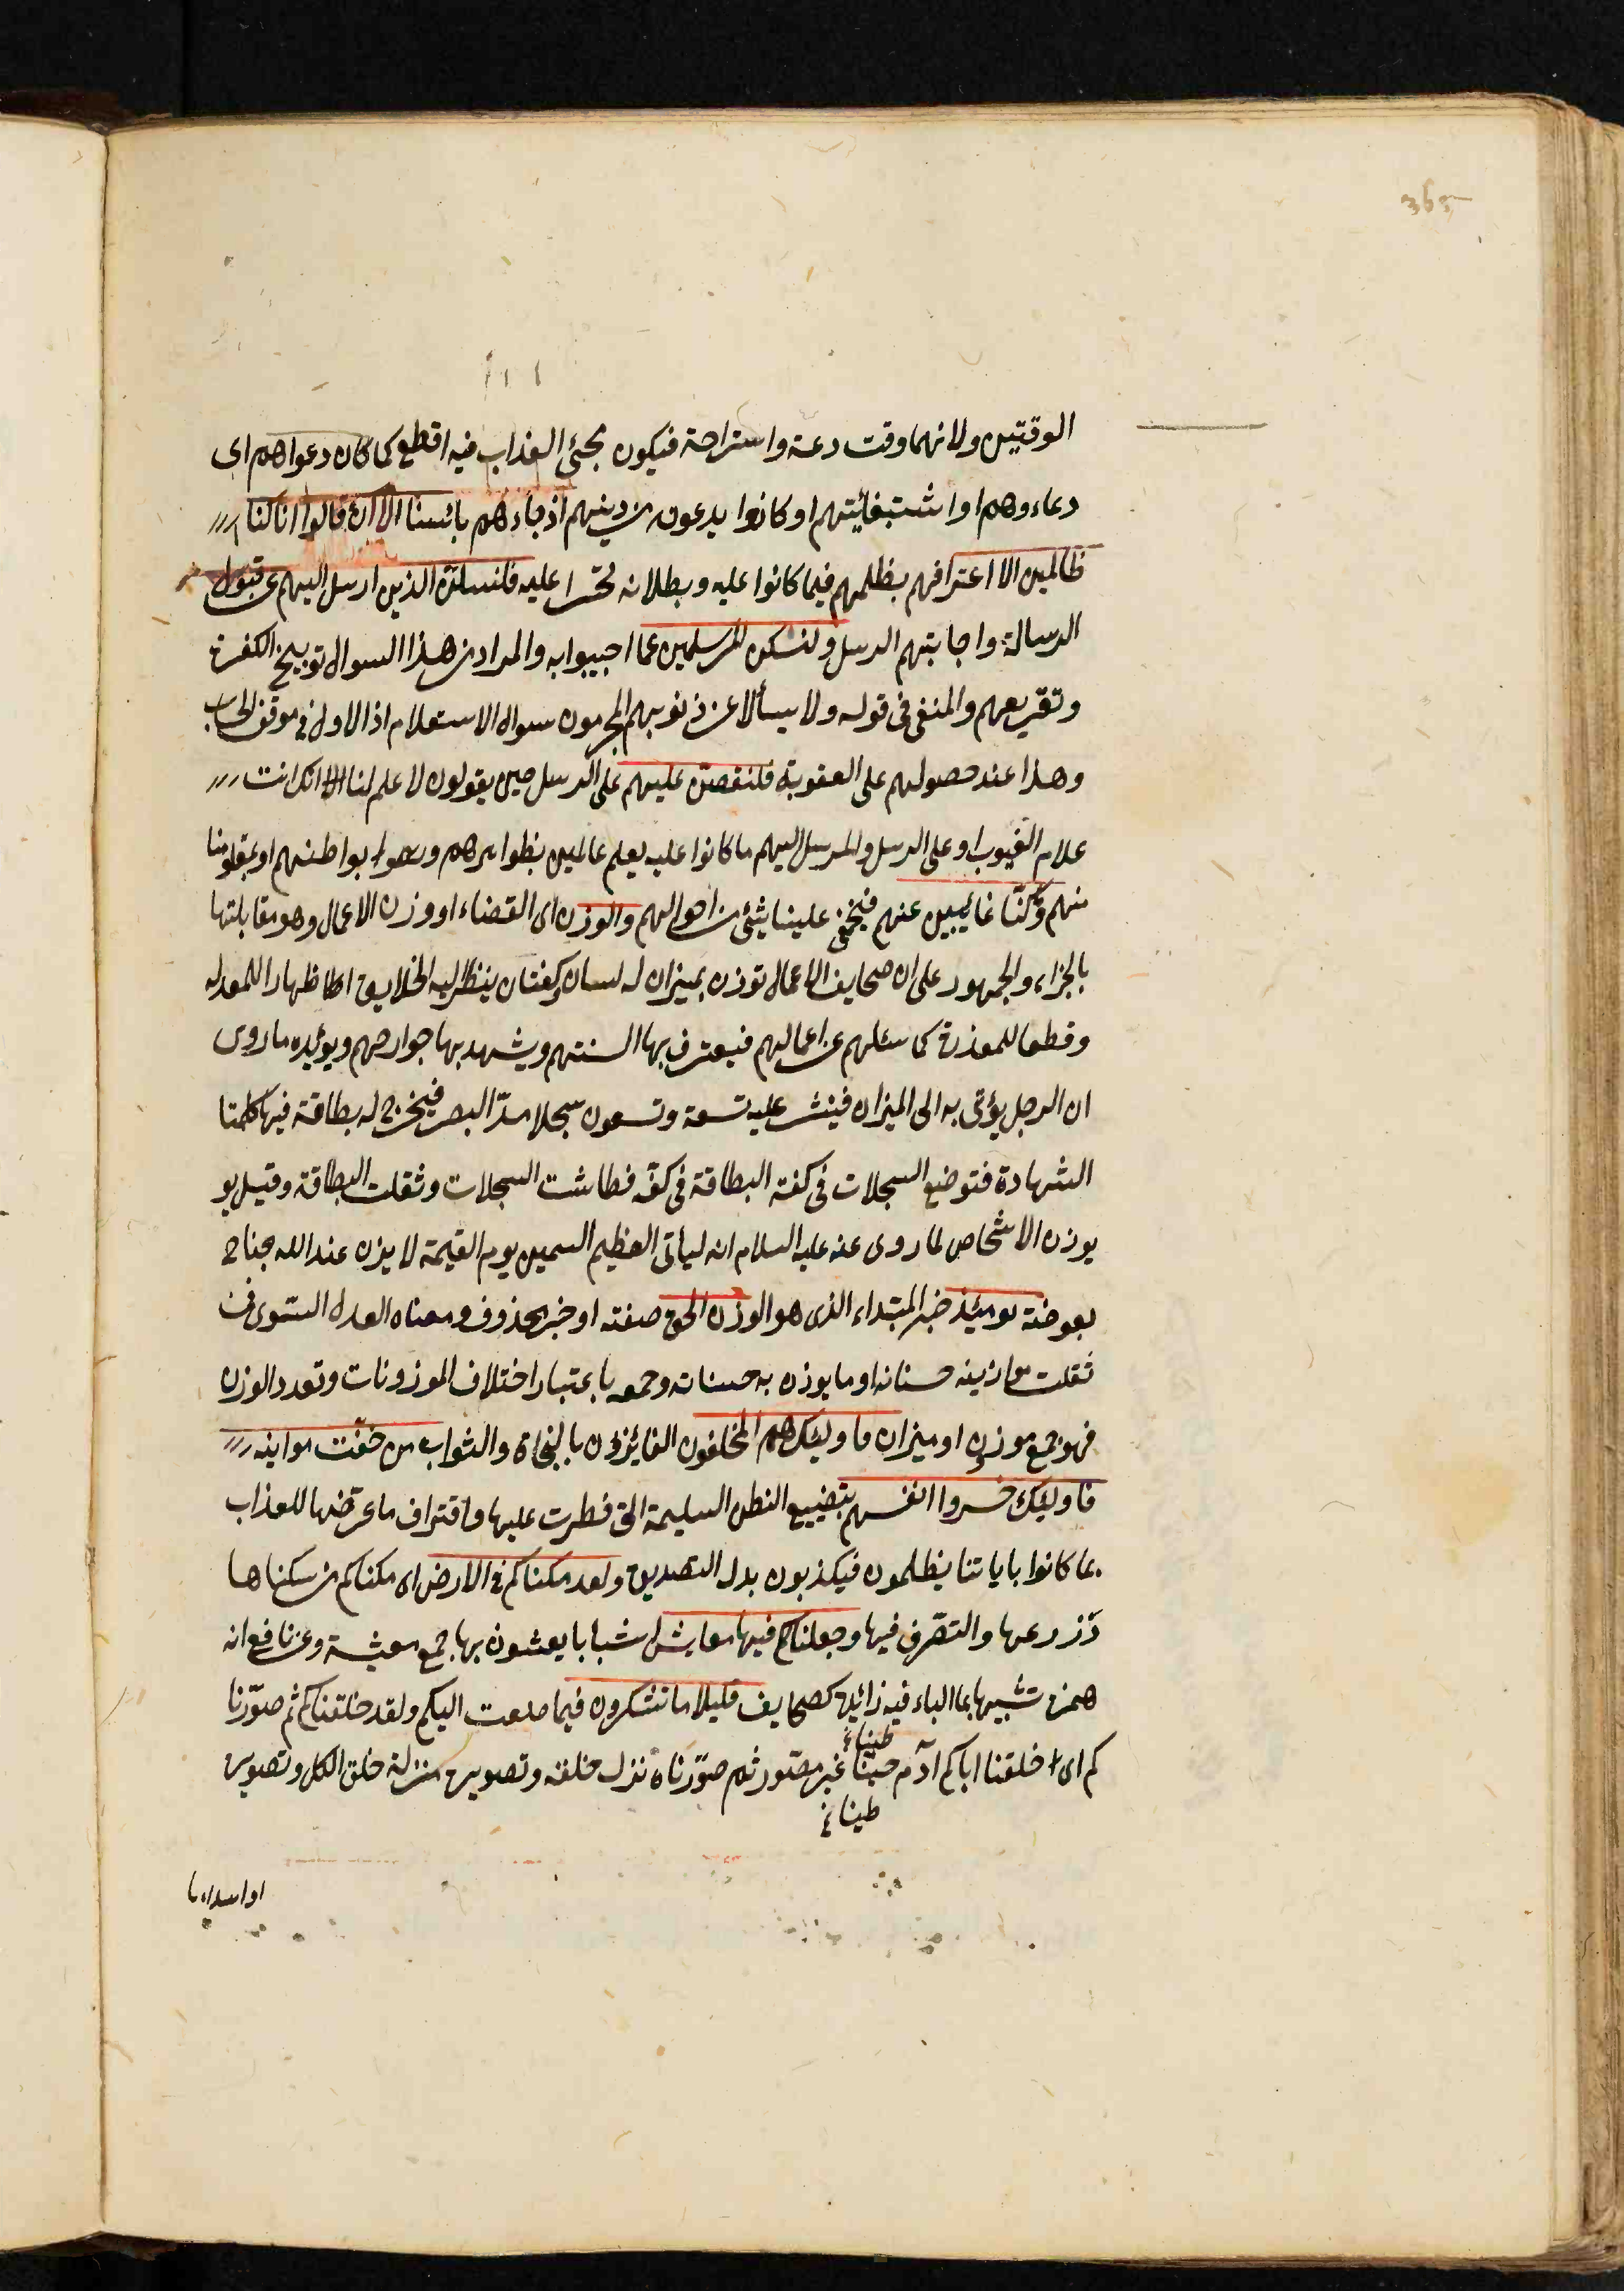 365
الوقتين ولانهما وقت دعة واستراحة فيكون مجئ العذاب فيه اقطع كما كان دعواهم اى
دعاءوهم او اشتبغاثيتهم او كانوا يدعون من دينهم اذ جاءهم بائسنا الا ان قالوا انا كنا
ظالمين الا اعترافهم بظلمهم فيما كانوا عليه وبطلانه تحسرا عليه فلنسئلن الذين ارسل اليهم عن قبول
الرسالة واجابتهم الرسل ولنسئلن المرسلين عما اجيبوا به والمراد من هذا السوال توبيخ الكفرة
وتقريعهم والمنفى فى قوله ولا يسألا عن ذنوبهم المجرمون سوال الاستعلام اذ الاول فى موقف الحساب
وهذا عند حصولهم على العقوبة فلنقصن عليهم على الرسل حين يقولون لا علم لنا الا انك انت
علام الغيوب او على الرسل والمرسل اليهم ما كانوا عليه بعلم عالمين بظواهرهم وبواطنهم او بمعلومنا
منهم وما كنا غائبين عنهم فيخفى علينا شئ من احوالهم والوزن اى القضاء او وزن الاعمال وهو مقابلتها
بالجزاء والجمهور على ان صحايف الاعمال توزن بميزان له لسان وكفتان ينظر اليه الخلايق اظهارا للمعدلة
وقطعا للمعذرة كما سئلهم عن اعمالهم فيعترف بها السنتهم ويشهد بها جوارحهم ويؤيده ما روى
ان الرجل يؤتى به الى الميزان فينشر عليه تسعة وتسعون سجلا مدّ البصر فيخرج له بطاقة فيها كلمتا
الشهادة فتوضع السجلات فى كفة البطاقة فى كفة فطاشت السجلات وثقلت البطاقة وقيل يو
يوزن الاشخاص لما روى عنه عليه السلام انه لياتى العظيم السمين يوم القيمة لا يزن عند الله جناح
بعوضة يومئذ خبر المبتداء الذى هو الوزن الحق صفته او خبر محذوف ومعناه العدل السوى فمن
ثقلت موازينه حسناته او ما يوزن به حسناته وجمعه باعتبار اختلاف الموزونات وتعدد الوزن
فهو جمع موزون او ميزان فاولئك هم المفلحون الفائزون بالنجاة والثواب من خفت موازينه
فاولئك خسروا انفسهم بتضييع الفطن السليمة التى فطرت عليها واقتراف ما عرضها للعذاب
بما كانوا باياتنا يظلمون فيكذبون بدل التصديق ولقد مكناكم فى الارض اى مكناكم من سكناها
وزرعها والتصرف فيها وجعلناكم فيها معايش اسبابا يعيشون بها جمع معيشة وعن نافع انه
همزة تشبيها بما الياء فيه زائدة كصحايف قليلا ما تشكرون فيما صنعت اليكم ولقد خلقناكم ثم صوّرنا
طينا
كم اى خلقنا اباكم آدم غير مصوّر ثم صوّرناه نزل خلقه وتصويره منزلة خلق الكل وتصويره
طينا